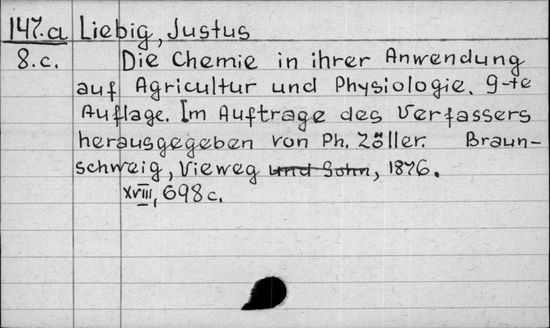 147.a Liebig, Justus
8.c. Die Chemie in ihrer Anwendung
auf Agricultur und Physiologie. 9-te
Auflage. Im Auftrage des Verfassers
herausgegeben von Ph. Zöller. Braun-
schweig, Vieweg und Sohn, 1876.
XVIII, 698c.